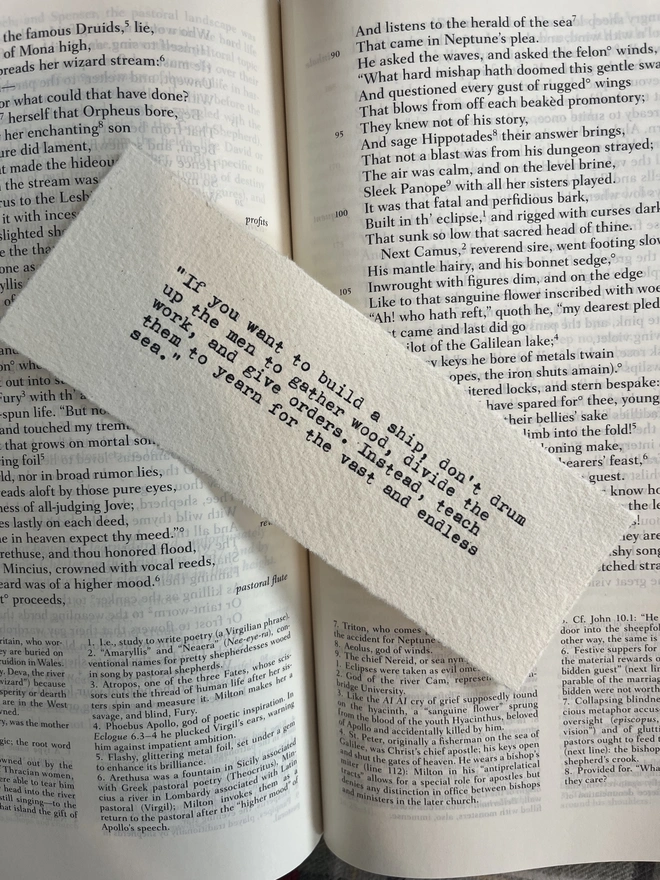 the famous Druids,⁵ lie,
of Mona high,
reads her wizard stream:⁶
or what could that have done?
⁷ herself that Orpheus bore,
her enchanting⁸ son
ure did lament,
t made the hideou
the stream was
rus to the Lesb
it with inces
slighted she
e the tha
one as
yllis
profits
out into
Fury³ with th'
-spun life. "But no
and touched my trem
t that grows on mortal soil
ring foil⁵
ld, nor in broad rumor lies,
reads aloft by those pure eyes,
ness of all-judging Jove;
es lastly on each deed,
me in heaven expect thy meed."⁹
rethuse, and thou honored flood,
Mincius, crowned with vocal reeds,
eard was of a higher mood.⁶
t° proceeds,
pastoral flute
ritain, who wor-
ey are buried on
ruidion in Wales.
y. Deva, the river
wizard") because
sperity or dearth
are in the West
wned.
ry, was the mother
gic; the root word
owned out by the
Thracian women,
ere able to tear him
head into the river
still singing—to the
hat island the gift of
1. I.e., study to write poetry (a Virgilian phrase).
2. "Amaryllis" and "Neaera" (Nee-eye-ra), con-
ventional names for pretty shepherdesses wooed
in song by pastoral shepherds.
3. Atropos, one of the three Fates, whose scis-
sors cuts the thread of human life after her sis-
ters spin and measure it. Milton makes her a
savage, and blind, Fury.
4. Phoebus Apollo, god of poetic inspiration. In
Eclogue 6.3–4 he plucked Virgil's ears, warning
him against impatient ambition.
5. Flashy, glittering metal foil, set under a gem
to enhance its brilliance.
6. Arethusa was a fountain in Sicily associated
with Greek pastoral poetry (Theocritus), Min-
cius a river in Lombardy associated with Latin
pastoral (Virgil); Milton invokes them as a
return to the pastoral after the "higher mood" of
Apollo's speech.
"If you want to build a ship, don't drum
up the men to gather wood, divide the
work, and give orders. Instead, teach
them to yearn for the vast and endless
sea."
And listens to the herald of the sea⁷
90 That came in Neptune's plea.
He asked the waves, and asked the felon° winds,
"What hard mishap hath doomed this gentle swa
And questioned every gust of rugged° wings
That blows from off each beakèd promontory;
95 They knew not of his story,
And sage Hippotades⁸ their answer brings,
That not a blast was from his dungeon strayed;
The air was calm, and on the level brine,
Sleek Panope⁹ with all her sisters played.
100 It was that fatal and perfidious bark,
Built in th' eclipse,¹ and rigged with curses dark
That sunk so low that sacred head of thine.
Next Camus,² reverend sire, went footing slow
His mantle hairy, and his bonnet sedge,°
105 Inwrought with figures dim, and on the edge
Like to that sanguine flower inscribed with woe
"Ah! who hath reft," quoth he, "my dearest pled
t came and last did go
ilot of the Galilean lake;⁴
y keys he bore of metals twain
opes, the iron shuts amain).°
itered locks, and stern bespake:
have spared for° thee, young
heir bellies' sake
limb into the fold!⁵
koning make,
hearers' feast,⁶
guest.
know ho
the le
hey are
shy song
tched stra
7. Triton, who comes
the accident for Neptune.
8. Aeolus, god of winds.
9. The chief Nereid, or sea nym
1. Eclipses were taken as evil ome
2. God of the river Cam, represent
bridge University.
3. Like the AI AI cry of grief supposedly found
on the hyacinth, a "sanguine flower" sprung
from the blood of the youth Hyacinthus, beloved
of Apollo and accidentally killed by him.
4. St. Peter, originally a fisherman on the sea of
Galilee, was Christ's chief apostle; his keys open
and shut the gates of heaven. He wears a bishop's
miter (line 112): Milton in his "antiprelatical
tracts" allows for a special role for apostles but
denies any distinction in office between bishops
and ministers in the later church.
5. Cf. John 10.1: "He
door into the sheepfol
other way, the same is
6. Festive suppers for
the material rewards o
bidden guest" (next lin
parable of the marriag
bidden were not worth
7. Collapsing blindne
cious metaphor accus
oversight (episcopus,
vision") and of glutto
pastors ought to feed t
(next line): the bishop
shepherd's crook.
8. Provided for. "Wha
they care?